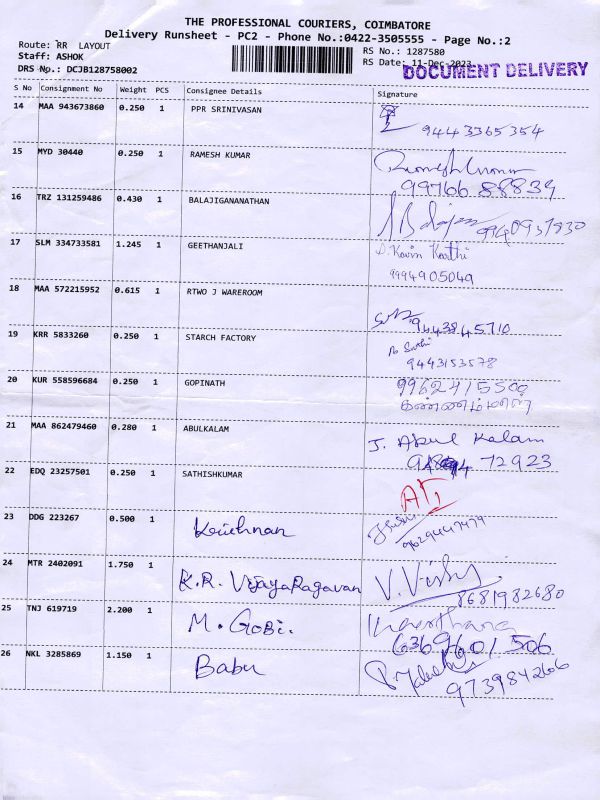 THE PROFESSIONAL COURIERS, COIMBATORE
Delivery Runsheet - PC2 - Phone No.:0422-3505555 - Page No.:2
Route: RR LAYOUT
RS No.: 1287580
Staff: ASHOK
RS Date: 11-Dec-2023
DRS No.: DCJB128758002
DOCUMENT DELIVERY
S No Consignment No Weight PCS Consignee Details Signature
14 MAA 943673860 0.250 1 PPR SRINIVASAN
9443365354
15 MYD 30440 0.250 1 RAMESH KUMAR
99766 88839
16 TRZ 131259486 0.430 1 BALAJIGANANATHAN
9940937930
17 SLM 334733581 1.245 1 GEETHANJALI
D. Kavin Karthi
9994905049
18 MAA 572215952 0.615 1 RTWO J WAREROOM
9443845710
19 KRR 5833260 0.250 1 STARCH FACTORY
9443153578
20 KUR 558596684 0.250 1 GOPINATH
21 MAA 862479460 0.280 1 ABULKALAM
J. Abul Kalam
72923
22 EDQ 23257501 0.250 1 SATHISHKUMAR
23 DDG 223267 0.500 1 Krishnan
9629447479
24 MTR 2402091 1.750 1 K.R. VijayaRagavan
V. Vishy
8681982680
25 TNJ 619719 2.200 1 M. Gobi.
Keerthana
6369601506
26 NKL 3285869 1.150 1 Babu
9739842666